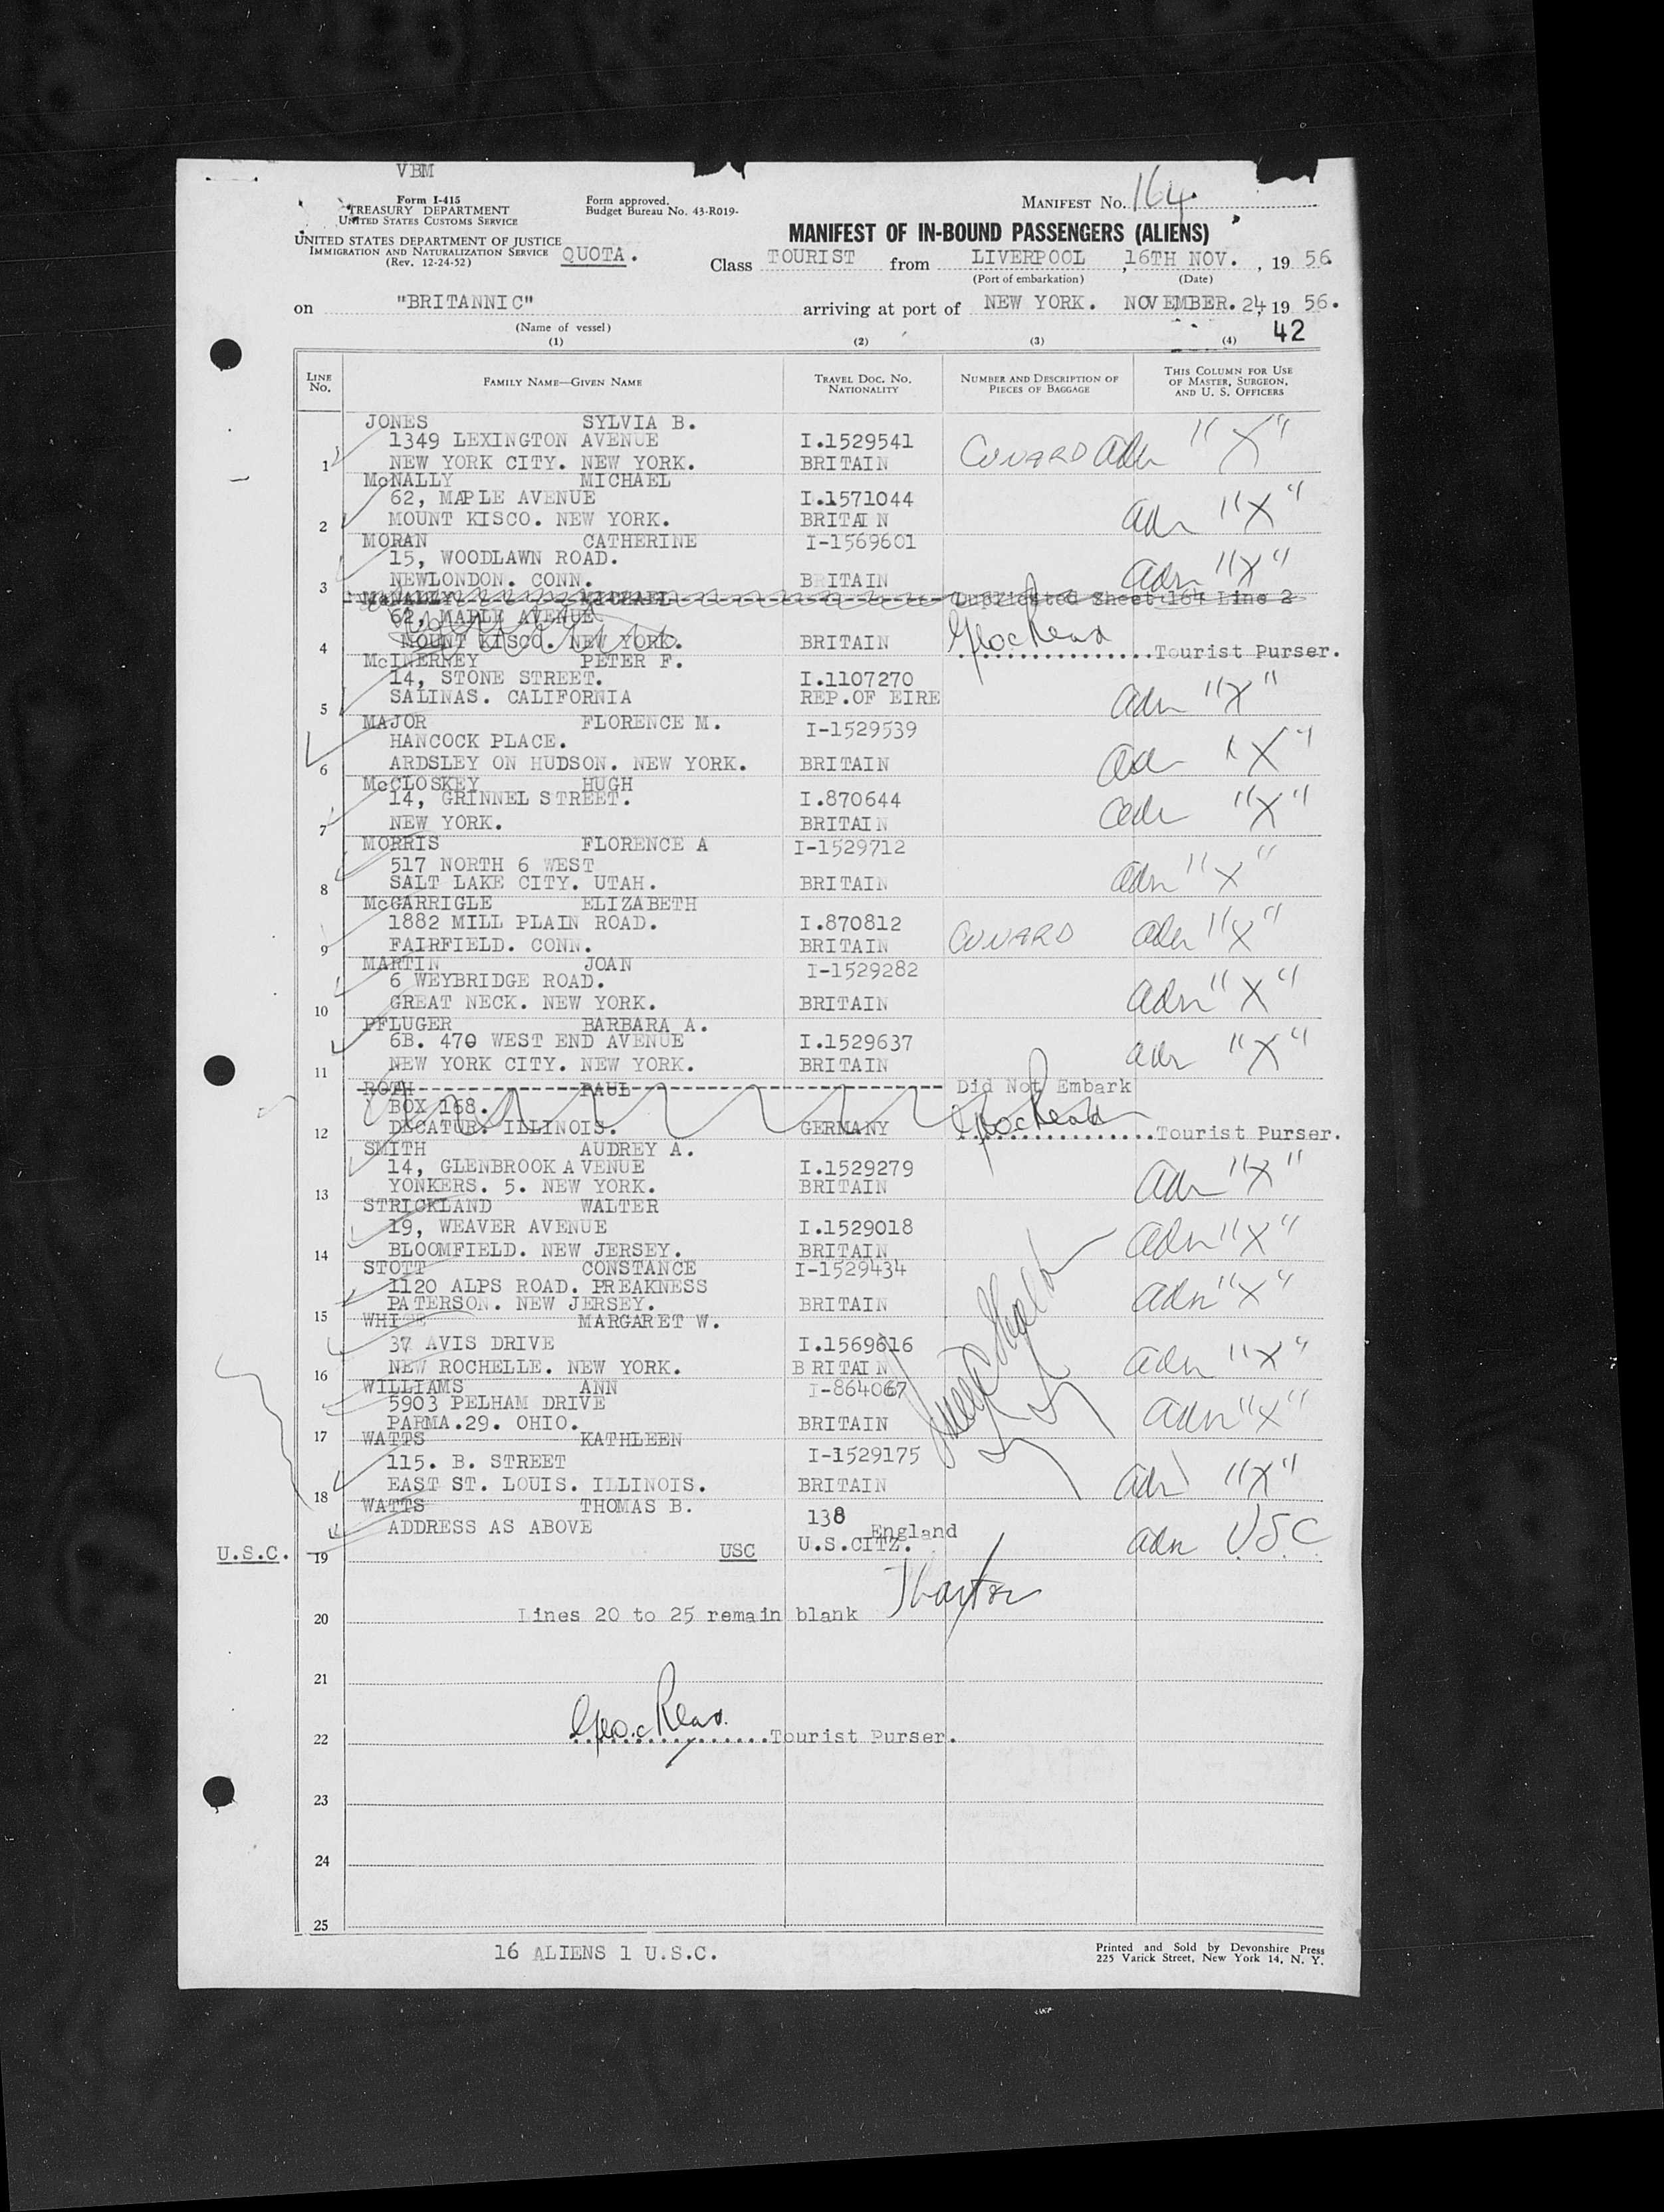 VBM
Form I-415
TREASURY DEPARTMENT
UNITED STATES CUSTOMS SERVICE
Form approved.
Budget Bureau No. 43-R019-
MANIFEST No. 164
UNITED STATES DEPARTMENT OF JUSTICE
IMMIGRATION AND NATURALIZATION SERVICE
(Rev. 12-24-52)
QUOTA.
MANIFEST OF IN-BOUND PASSENGERS (ALIENS)
Class TOURIST from LIVERPOOL, 16TH NOV., 19 56.
(Port of embarkation) (Date)
on "BRITANNIC" arriving at port of NEW YORK. NOVEMBER. 24, 19 56.
(Name of vessel)
42
(1) (2) (3) (4)
LINE NO. FAMILY NAME—GIVEN NAME TRAVEL DOC. NO. NATIONALITY NUMBER AND DESCRIPTION OF PIECES OF BAGGAGE THIS COLUMN FOR USE OF MASTER, SURGEON, AND U. S. OFFICERS
JONES SYLVIA B.
1349 LEXINGTON AVENUE I.1529541
1 NEW YORK CITY. NEW YORK. BRITAIN CUNARD adm "X"
McNALLY MICHAEL
62, MAPLE AVENUE I.1571044
2 MOUNT KISCO. NEW YORK. BRITAIN adm "X"
MORAN CATHERINE I-1569601
15, WOODLAWN ROAD.
3 NEWLONDON. CONN. BRITAIN adm "X"
McNALLY MICHAEL Duplicated Sheet 164 Line 2
62, MAPLE AVENUE
4 MOUNT KISCO. NEW YORK. BRITAIN Tourist Purser.
McINERNEY PETER F.
14, STONE STREET. I.1107270
5 SALINAS. CALIFORNIA REP.OF EIRE adm "X"
MAJOR FLORENCE M. I-1529539
HANCOCK PLACE.
6 ARDSLEY ON HUDSON. NEW YORK. BRITAIN adm "X"
McCLOSKEY HUGH
14, GRINNEL STREET. I.870644
7 NEW YORK. BRITAIN adm "X"
MORRIS FLORENCE A I-1529712
517 NORTH 6 WEST
8 SALT LAKE CITY. UTAH. BRITAIN adm "X"
McGARRIGLE ELIZABETH
1882 MILL PLAIN ROAD. I.870812
9 FAIRFIELD. CONN. BRITAIN CUNARD adm "X"
MARTIN JOAN I-1529282
6 WEYBRIDGE ROAD.
10 GREAT NECK. NEW YORK. BRITAIN adm "X"
PFLUGER BARBARA A.
6B. 470 WEST END AVENUE I.1529637
11 NEW YORK CITY. NEW YORK. BRITAIN adm "X"
ROTH PAUL Did Not Embark
BOX 168.
12 DECATUR. ILLINOIS. GERMANY Tourist Purser.
SMITH AUDREY A.
14, GLENBROOK AVENUE I.1529279
13 YONKERS. 5. NEW YORK. BRITAIN adm "X"
STRICKLAND WALTER
19, WEAVER AVENUE I.1529018
14 BLOOMFIELD. NEW JERSEY. BRITAIN adm "X"
STOTT CONSTANCE I-1529434
1120 ALPS ROAD. PREAKNESS
15 PATERSON. NEW JERSEY. BRITAIN adm "X"
WHITE MARGARET W.
37 AVIS DRIVE I.1569616
16 NEW ROCHELLE. NEW YORK. BRITAIN adm "X"
WILLIAMS ANN I-864067
5903 PELHAM DRIVE
17 PARMA.29. OHIO. BRITAIN adm "X"
WATTS KATHLEEN
115. B. STREET I-1529175
18 EAST ST. LOUIS. ILLINOIS. BRITAIN adm "X"
WATTS THOMAS B. 138
ADDRESS AS ABOVE England
U.S.C. 19 USC U.S.CITZ. adm U.S.C.
20 Lines 20 to 25 remain blank
21
22 Geo. C Read. Tourist Purser.
23
24
25
16 ALIENS 1 U.S.C.
Printed and Sold by Devonshire Press
225 Varick Street, New York 14, N. Y.